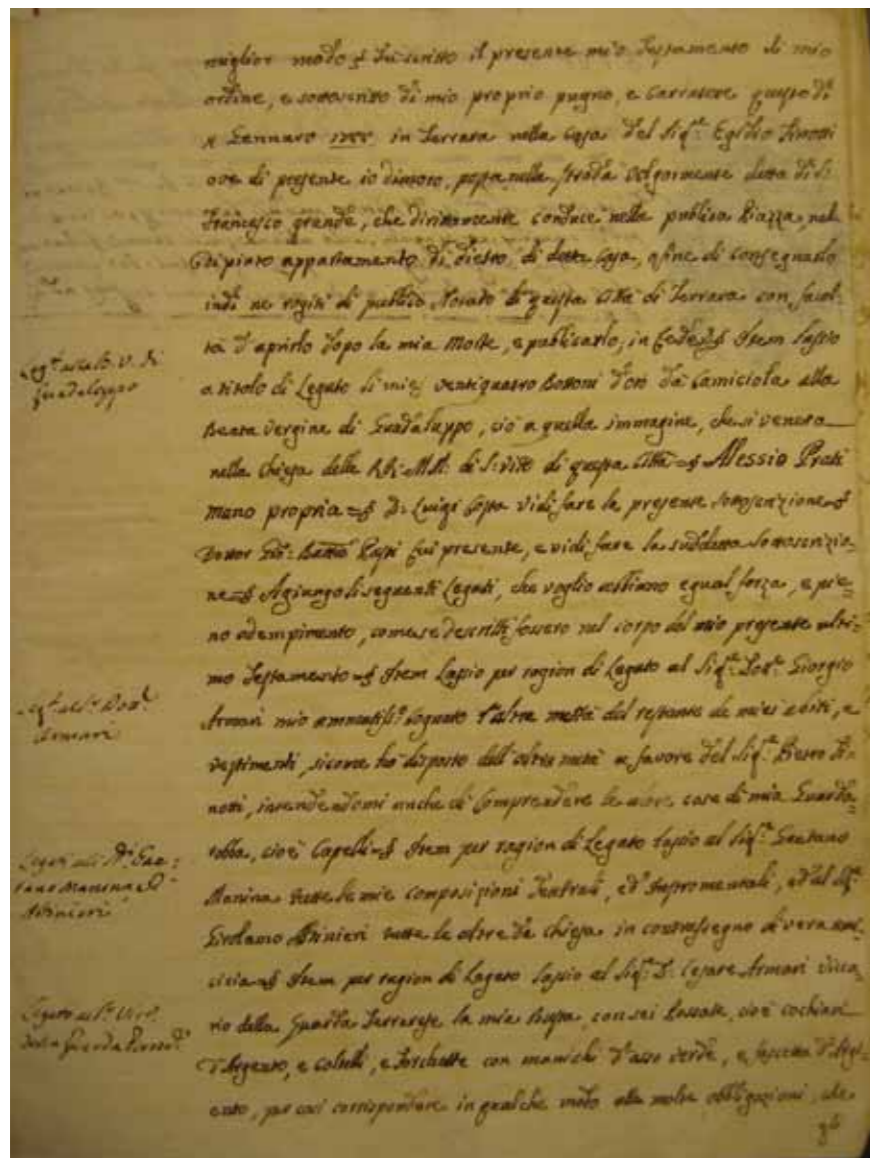 miglior modo ho scritto il presente mio Testamento di mio
ordine, e sottoscritto di mio proprio pugno, e Carratere questo dì
Gennaro in Ferrara nella Casa del Sig.r Egidio Finotti
ove di presente io dimoro, posta nella strada volgormente detta di S.
Francesco grande, che dirittamente conduce nella publica Piazza, nel
appartamento di dietro di detta Casa, afine di consegnarlo
indi ne rogiti di publico Notaro di questa Città di Ferrara con facol-
tà d'aprirlo dopo la mia Morte, e publicarlo, in fede Item lascio
a titolo di Legato li miei ventiquatro Bottoni d'oro da Camiciola alla
Beata Vergine di Guadaluppo, cioè a quella immagine, che si venera
nella Chiesa delle RR: MM: di S: Vito di questa Città = Alessio Prati
mano propria = D: Luigi Costa vidi fare la presente sottoscrizione
Dottor Gio: Batta Pasti fui presente, e vidi fare la suddetta sottoscrizio-
ne = Agiungo li seguenti Legati, che voglio abbiano egual forza, e pie=
no adempimento, come se descritti fossero nel corpo del mio presente ulti-
mo Testamento = Item Lascio per ragion di Legato al Sig.r Dott.r Giorgio
Armari mio Cognato l'altra mettà del restante de miei abiti, e
vestimenti, sicome ho disposto dell'altra metà a favore del Sig.r Pietro Fi=
notti, intendendomi anche di Comprendere le altre cose di mia Guarda=
robba, cioè Capelli = Item per ragion di Legato lascio al Sig.r Gaetano
Manina tutte le mie composizioni Teatrali, ed Instromentali, ed al Sig.r
Girolamo Abinieri tutte le altre da Chiesa in contrassegno di vera ami=
cicia = Item per ragion di Legato lascio al Sig.r D. Cesare Armari Vica=
rio della Guarda Ferrarese la mia con sei Possate, cioè cochiari
d'Argento, e Coltelli, e Forchette con manichi d'osso verde, e fascetta d'Arg=
ento, per così corrispondere in qualche modo alle molte obbligazioni, che
gli
Leg.to alla B. V. di
Guadaluppo
Leg.to al S.r Dott.r
Armari
Legati alli S.ri Gae=
tano Manina, ed
Abinieri
Legato al S.r Vic.o
della Guarda Ferrar.